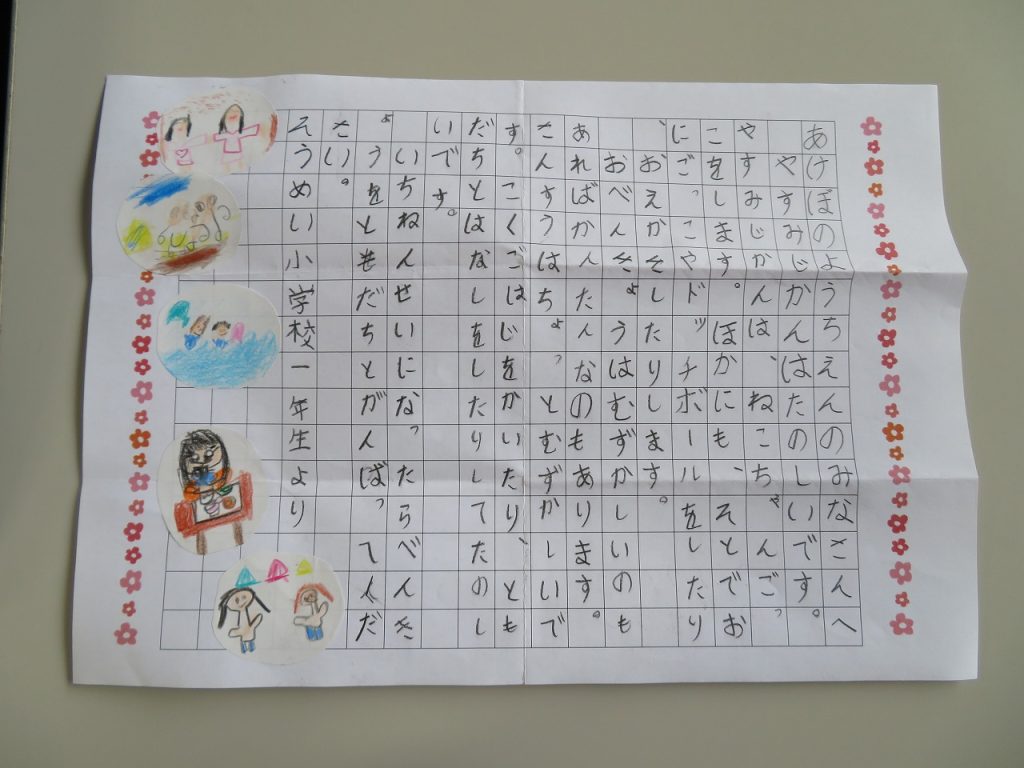 あけぼのようちえんのみなさんへ
やすみじかんはたのしいです。
やすみじかんは、ねこちゃんごっ
こをします。ほかにも、そとでお
にごっこやドッチボールをしたり
、おえかきしたりします。
おべんきょうはむずかしいのも
あればかんたんなのもあります。
さんすうはちょっとむずかしいで
す。こくごはじをかいたり、とも
だちとはなしをしたりしてたのし
いです。
いちねんせいになったらべんき
ょうをともだちとがんばってくだ
さい。
そうめい小学校一年生より